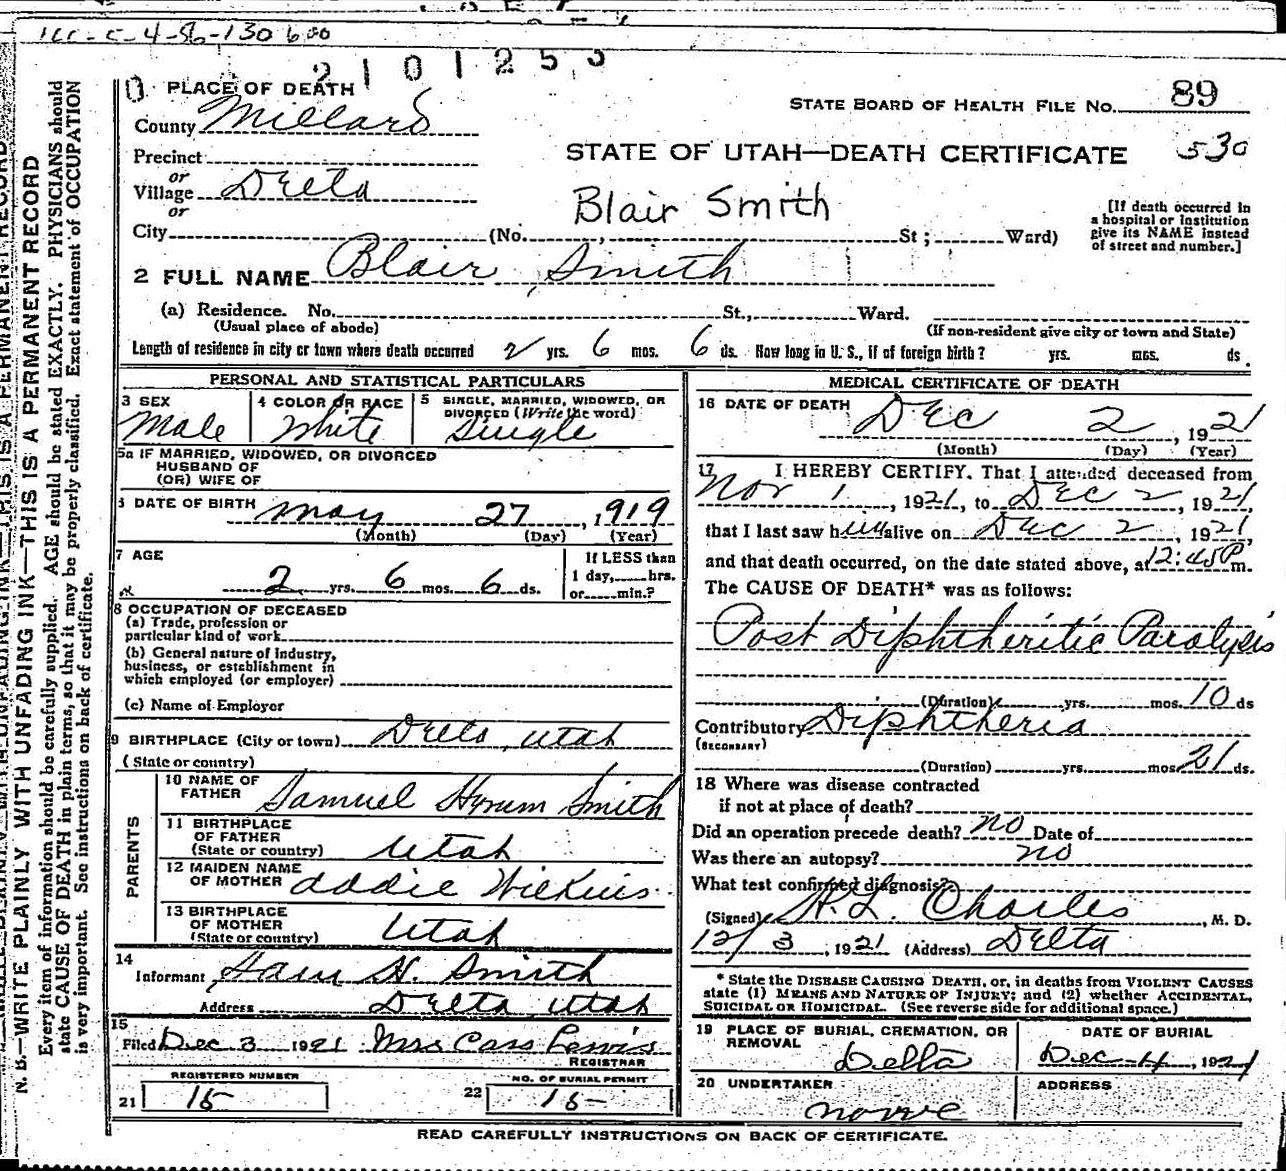 2101255
1 PLACE OF DEATH
STATE BOARD OF HEALTH FILE No. 89
County Millard
530
STATE OF UTAH—DEATH CERTIFICATE
Precinct
or
Village Delta
or
Blair Smith
[If death occurred in
a hospital or institution
give its NAME instead
of street and number.]
City (No. , St ; Ward)
2 FULL NAME Blair Smith
(a) Residence. No. St., Ward.
(Usual place of abode) (If non-resident give city or town and State)
Length of residence in city or town where death occurred 2 yrs. 6 mos. 6 ds. How long in U. S., if of foreign birth? yrs. mos. ds.
PERSONAL AND STATISTICAL PARTICULARS
3 SEX
Male
4 COLOR OR RACE
White
5 SINGLE, MARRIED, WIDOWED, OR
DIVORCED (Write the word)
Single
5a IF MARRIED, WIDOWED, OR DIVORCED
HUSBAND OF
(OR) WIFE OF
6 DATE OF BIRTH May 27, 1919
(Month) (Day) (Year)
7 AGE
2 yrs. 6 mos. 6 ds.
If LESS than
1 day, hrs.
or min.?
8 OCCUPATION OF DECEASED
(a) Trade, profession or
particular kind of work
(b) General nature of Industry,
business, or establishment in
which employed (or employer)
(c) Name of Employer
9 BIRTHPLACE (City or town) Delta, Utah
(State or country)
PARENTS
10 NAME OF
FATHER Samuel Hyrum Smith
11 BIRTHPLACE
OF FATHER
(State or country) Utah
12 MAIDEN NAME
OF MOTHER Addie Wilkins
13 BIRTHPLACE
OF MOTHER
(State or country) Utah
14
Informant Sam H. Smith
Address Delta, Utah
15
Filed Dec 3 1921 Mrs Cass Lewis
REGISTRAR
REGISTERED NUMBER
21 15
NO. OF BURIAL PERMIT
22 15
MEDICAL CERTIFICATE OF DEATH
16 DATE OF DEATH Dec 2, 1921
(Month) (Day) (Year)
17 I HEREBY CERTIFY, That I attended deceased from
Nov 1, 1921, to Dec 2, 1921,
that I last saw him alive on Dec 2, 1921,
and that death occurred, on the date stated above, at 12:45 P m.
The CAUSE OF DEATH* was as follows:
Post Diphtheritic Paralysis
(Duration) yrs. mos. 10 ds
Contributory Diphtheria
(SECONDARY)
(Duration) yrs. mos 21 ds.
18 Where was disease contracted
if not at place of death?
Did an operation precede death? no Date of
Was there an autopsy? no
What test confirmed diagnosis?
(Signed) H. L. Charles, M. D.
12/3, 1921 (Address) Delta
* State the DISEASE CAUSING DEATH, or, in deaths from VIOLENT CAUSES
state (1) MEANS AND NATURE OF INJURY; and (2) whether ACCIDENTAL,
SUICIDAL OR HOMICIDAL. (See reverse side for additional space.)
19 PLACE OF BURIAL, CREMATION, OR
REMOVAL
Delta
DATE OF BURIAL
Dec 4, 1921
20 UNDERTAKER
none
ADDRESS
READ CAREFULLY INSTRUCTIONS ON BACK OF CERTIFICATE.
N. B.—WRITE PLAINLY WITH UNFADING INK—THIS IS A PERMANENT RECORD
Every item of information should be carefully supplied. AGE should be stated EXACTLY. PHYSICIANS should
state CAUSE OF DEATH in plain terms, so that it may be properly classified. Exact statement of OCCUPATION
is very important. See instructions on back of certificate.